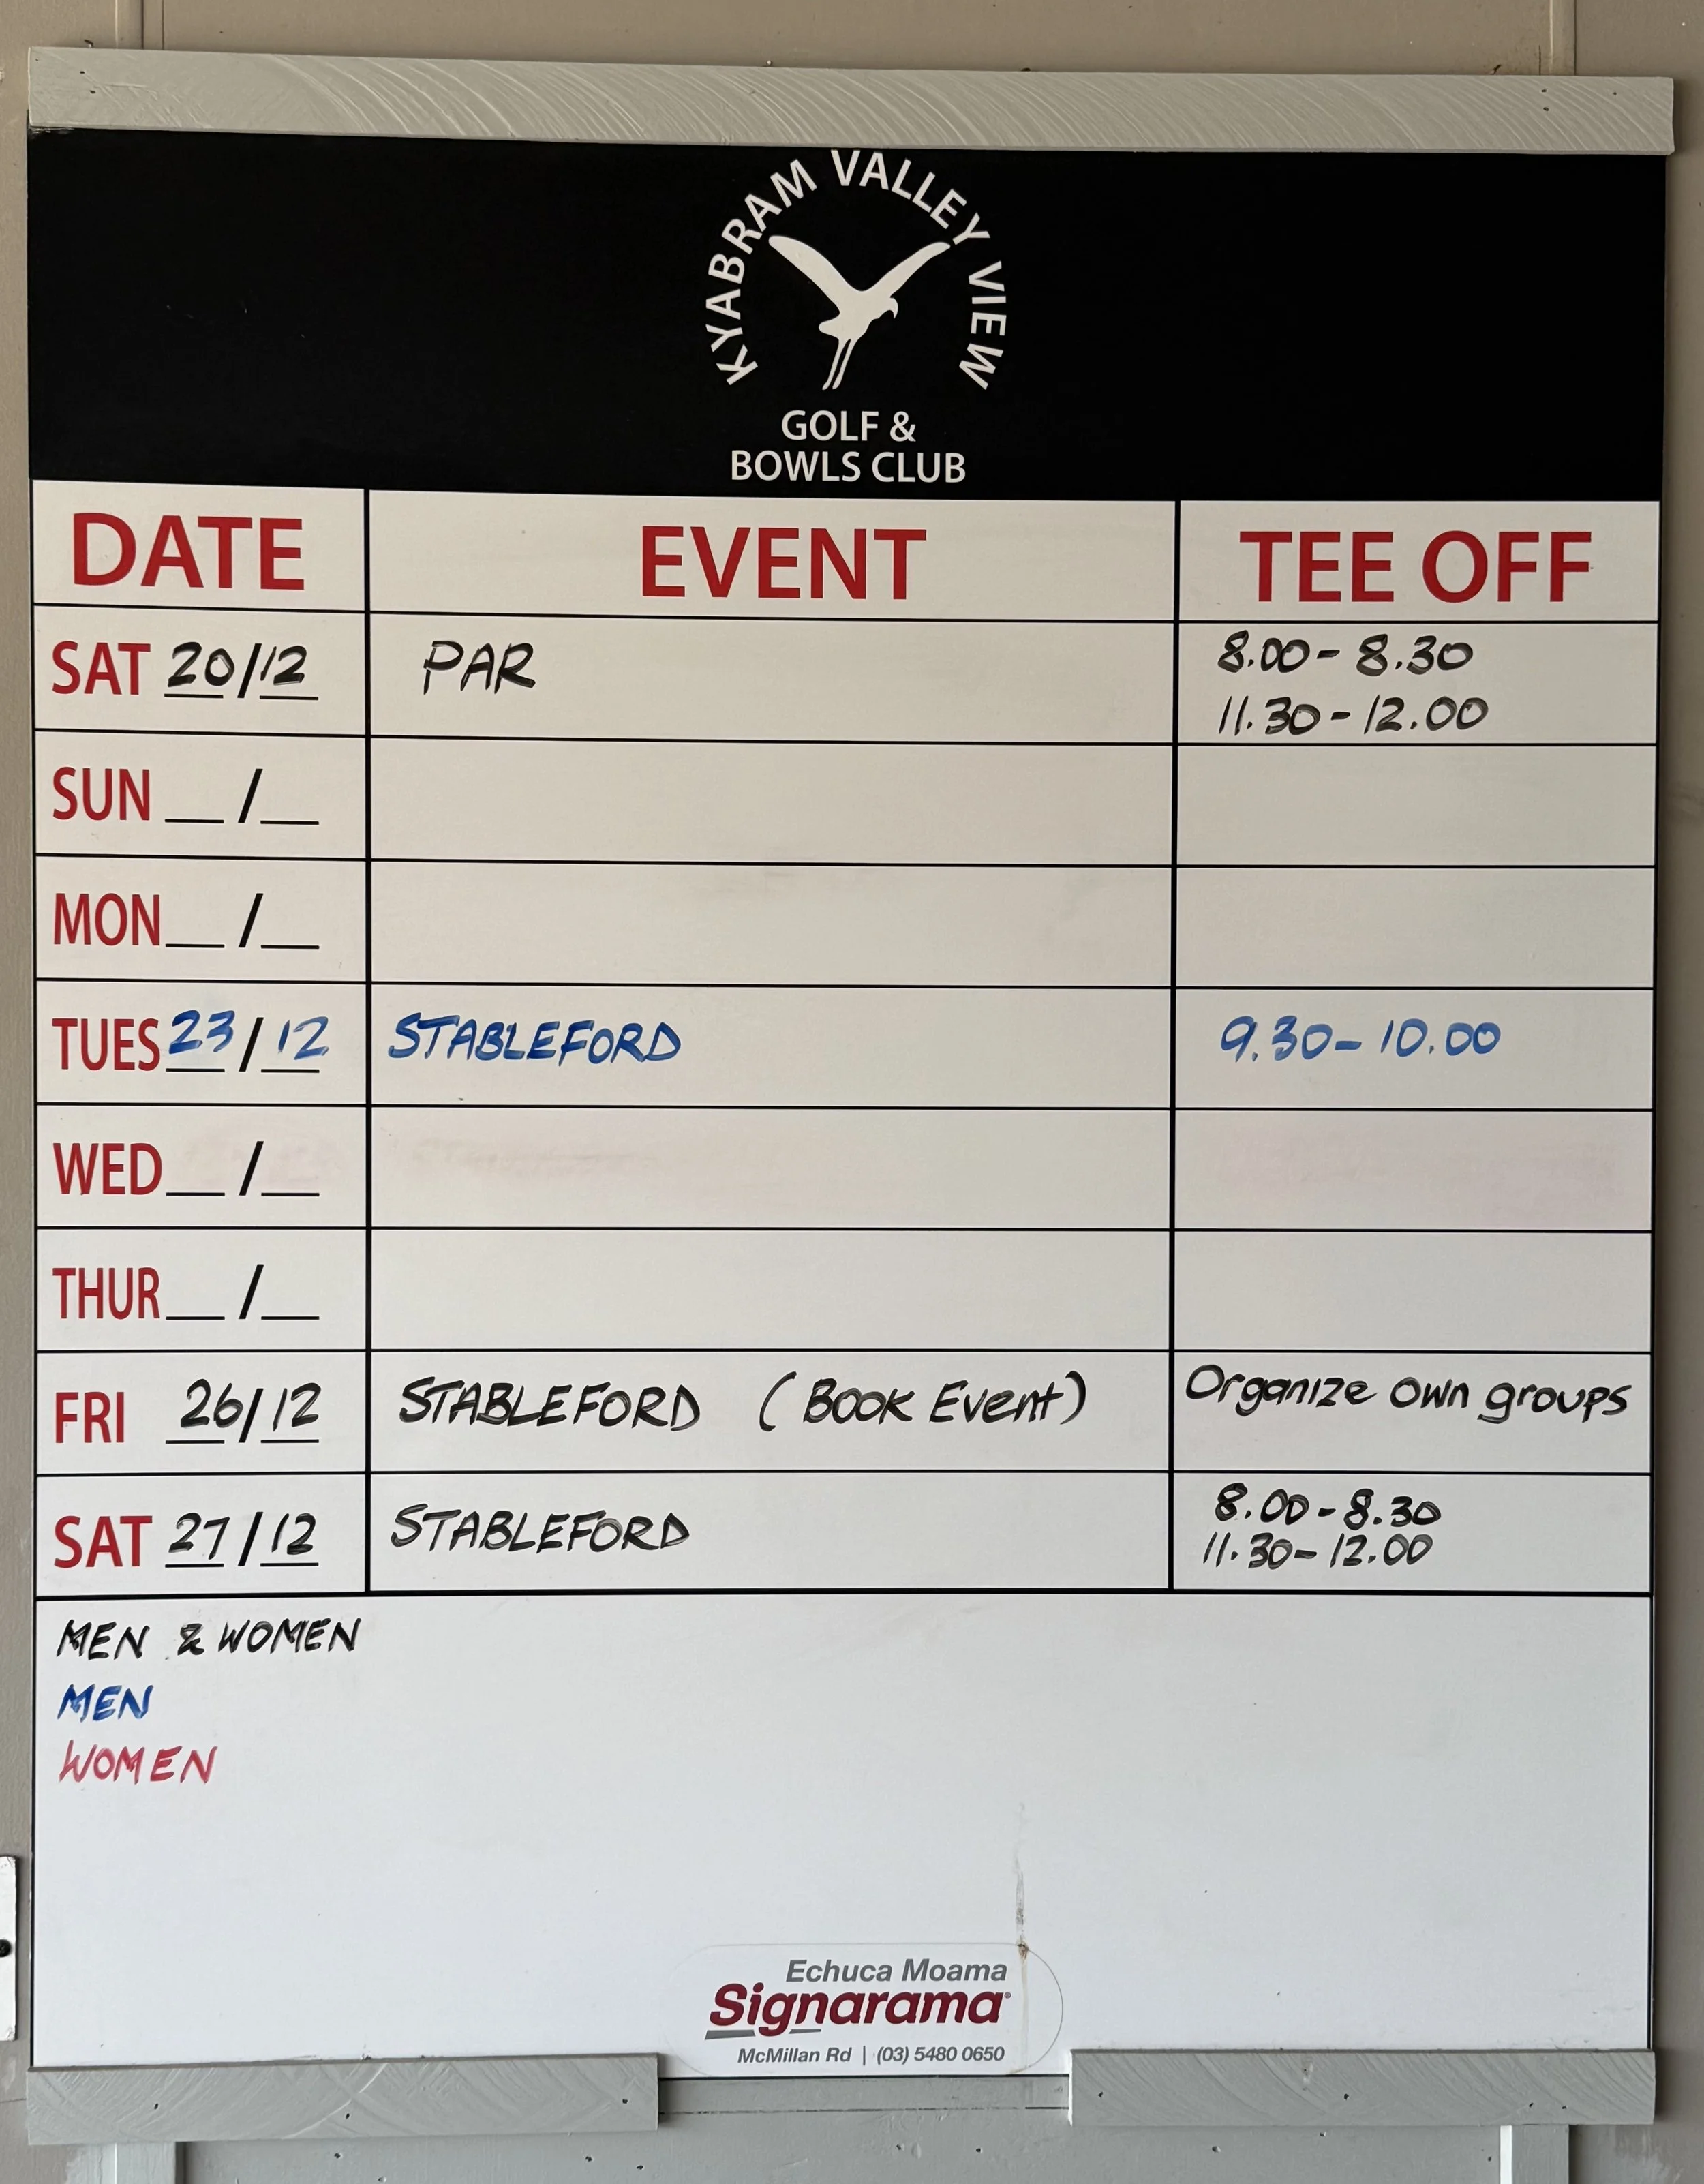 KYABRAM VALLEY VIEW
GOLF &
BOWLS CLUB
DATE EVENT TEE OFF
SAT 20/12 PAR 8.00 - 8.30
11.30 - 12.00
SUN __/__
MON __/__
TUES 23/12 STABLEFORD 9.30 - 10.00
WED __/__
THUR __/__
FRI 26/12 STABLEFORD (BOOK Event) Organize own groups
SAT 27/12 STABLEFORD 8.00 - 8.30
11.30 - 12.00
MEN & WOMEN
MEN
WOMEN
Echuca Moama
Signarama®
McMillan Rd | (03) 5480 0650